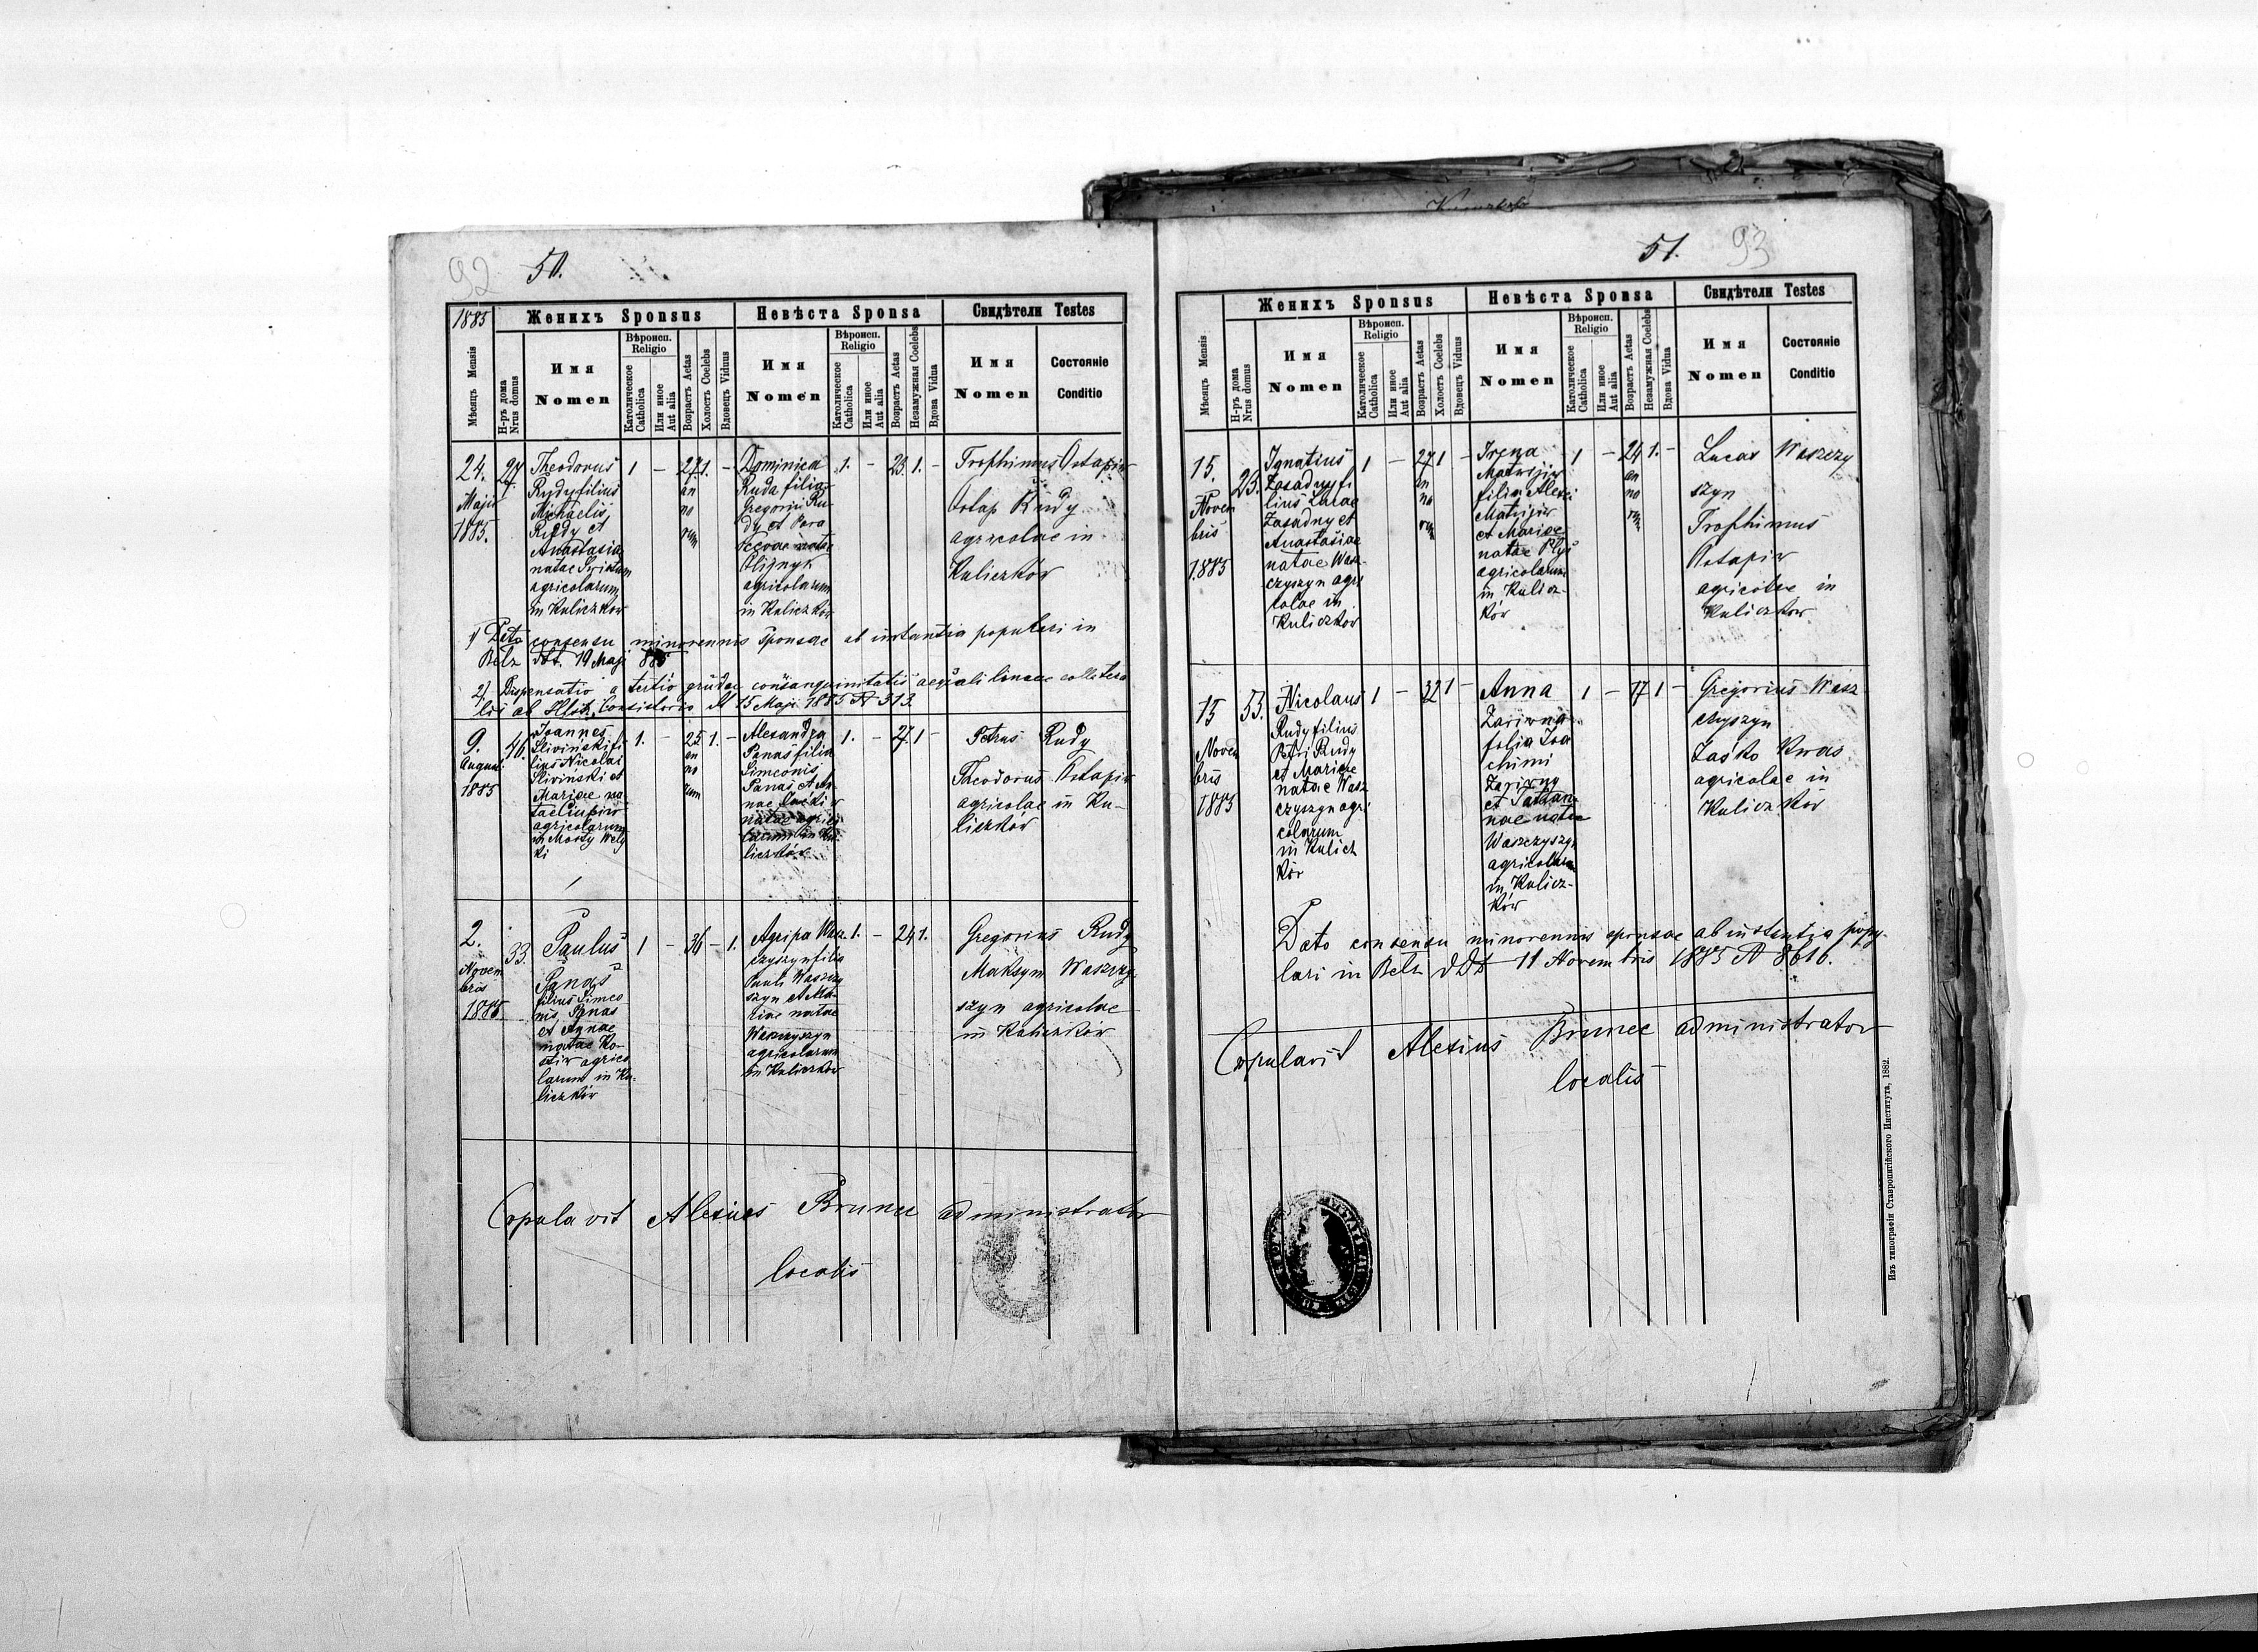 Kuliczków
92 50.
1885
Женихъ Sponsus
Невѣста Sponsa
Свидѣтели Testes
Мѣсяцъ Mensis
Н-ръ дома Nrus domus
Имя Nomen
Вѣроисп. Religio
Католическое Catholica
Или иное Aut alia
Возрастъ Aetas
Холостъ Coelebs
Вдовецъ Viduus
Имя Nomen
Вѣроисп. Religio
Католическое Catholica
Или иное Aut alia
Возрастъ Aetas
Незамужная Coelebs
Вдова Vidua
Имя Nomen
Состояніе Conditio
24.
Maji
1885.
27.
Theodorus
Rudy filius
Michaelis
Rudy et
Anastasiae
natae
agricolarum
in Kuliczkow
1 — 27 1. —
an
no
rum
Dominica
Ruda filia
Gregorii Ru-
dy et Para
scevae natae
Olijnyk
agricolarum
in Kuliczków
1. — 23. 1. —
Trophimus Ostapiw
Ostap Rudy
agricolae in
Kuliczków
1) Dato consensu minorennis sponsae ab instantia populari in
Belz ddt. 19 Maji 885
2) Dispensatio a tertio gradu consanguinitatis aequali lineae collatera
lis ab Consistorio 15 Maji 1885 N 313.
9.
Augusti
1885
46.
Joannes
Sliwiński fi
lius Nicolai
Sliwiński et
Mariae na
tae
agricolarum
in Mosty Wely
ki
1. — 25 1. —
an
no
rum
Alexandra
Panas filia
Simeonis
Panas et An
nae
natae agrico
larum in Ku
liczków
1. — 27. 1 —
Petrus Rudy
Theodorus Ostapiw
agricolae in Ku-
liczków
2.
Novem
bris
1885.
33.
Paulus
Panas
filius Simeo
nis Panas
et Annae
natae Ko-
stiw agrico
larum in Ku-
liczków
1 — 36 — 1.
Agripa Wasz
czyszyn filia
Pauli Waszczy
szyn et Ma-
riae natae
Waszczyszyn
agricolarum
in Kuliczkow
1. — 24 1.
Gregorius Rudy
Maksym Waszczy
szyn agricolae
in Kuliczków
Copulavit Alexius Brunec administrator
localis
51. 93
Женихъ Sponsus
Невѣста Sponsa
Свидѣтели Testes
Мѣсяцъ Mensis
Н-ръ дома Nrus domus
Имя Nomen
Вѣроисп. Religio
Католическое Catholica
Или иное Aut alia
Возрастъ Aetas
Холостъ Coelebs
Вдовецъ Viduus
Имя Nomen
Вѣроисп. Religio
Католическое Catholica
Или иное Aut alia
Возрастъ Aetas
Незамужная Coelebs
Вдова Vidua
Имя Nomen
Состояніе Conditio
15.
Novem
bris
1885
23.
Ignatius
Zasadny fi
lius Lucae
Zasadny et
Anastasiae
natae Wasz-
czyszyn agri
colae in
Kuliczkow
1 — 27 1 —
an
no
rum
Irena
Matwijiw
filia Alexi
Matwijiw
et Mariae
natae Plys
agricolarum
in Kulicz-
ków
1 — 24 1. —
an
no
rum
Lucas Waszczy
szyn
Trophimus
Ostapiw
agricolae in
Kuliczkow
15
Novem
bris
1885
53.
Nicolaus
Rudy filius
Petri Rudy
et Mariae
natae Wasz
czyszyn agri
colarum
in Kulicz
ków
1 — 32 1 —
Anna
Zariwna
filia Joa
chimi
Zariwny
et Tatian-
nae natae
Waszczyszyn
agricolarum
in Kulicz-
ków
1 — 17 1 —
Gregorius Wasz-
czyszyn
Zaśko Kwas
agricolae in
Kuliczków
Dato consensu minorennis sponsae ab instantia popu-
lari in Belz ddt 11 Novembris 1885 N 8616.
Copulavit Alexius Brunec administrator
localis
Изъ типографіи Ставропигійского Института, 1882.